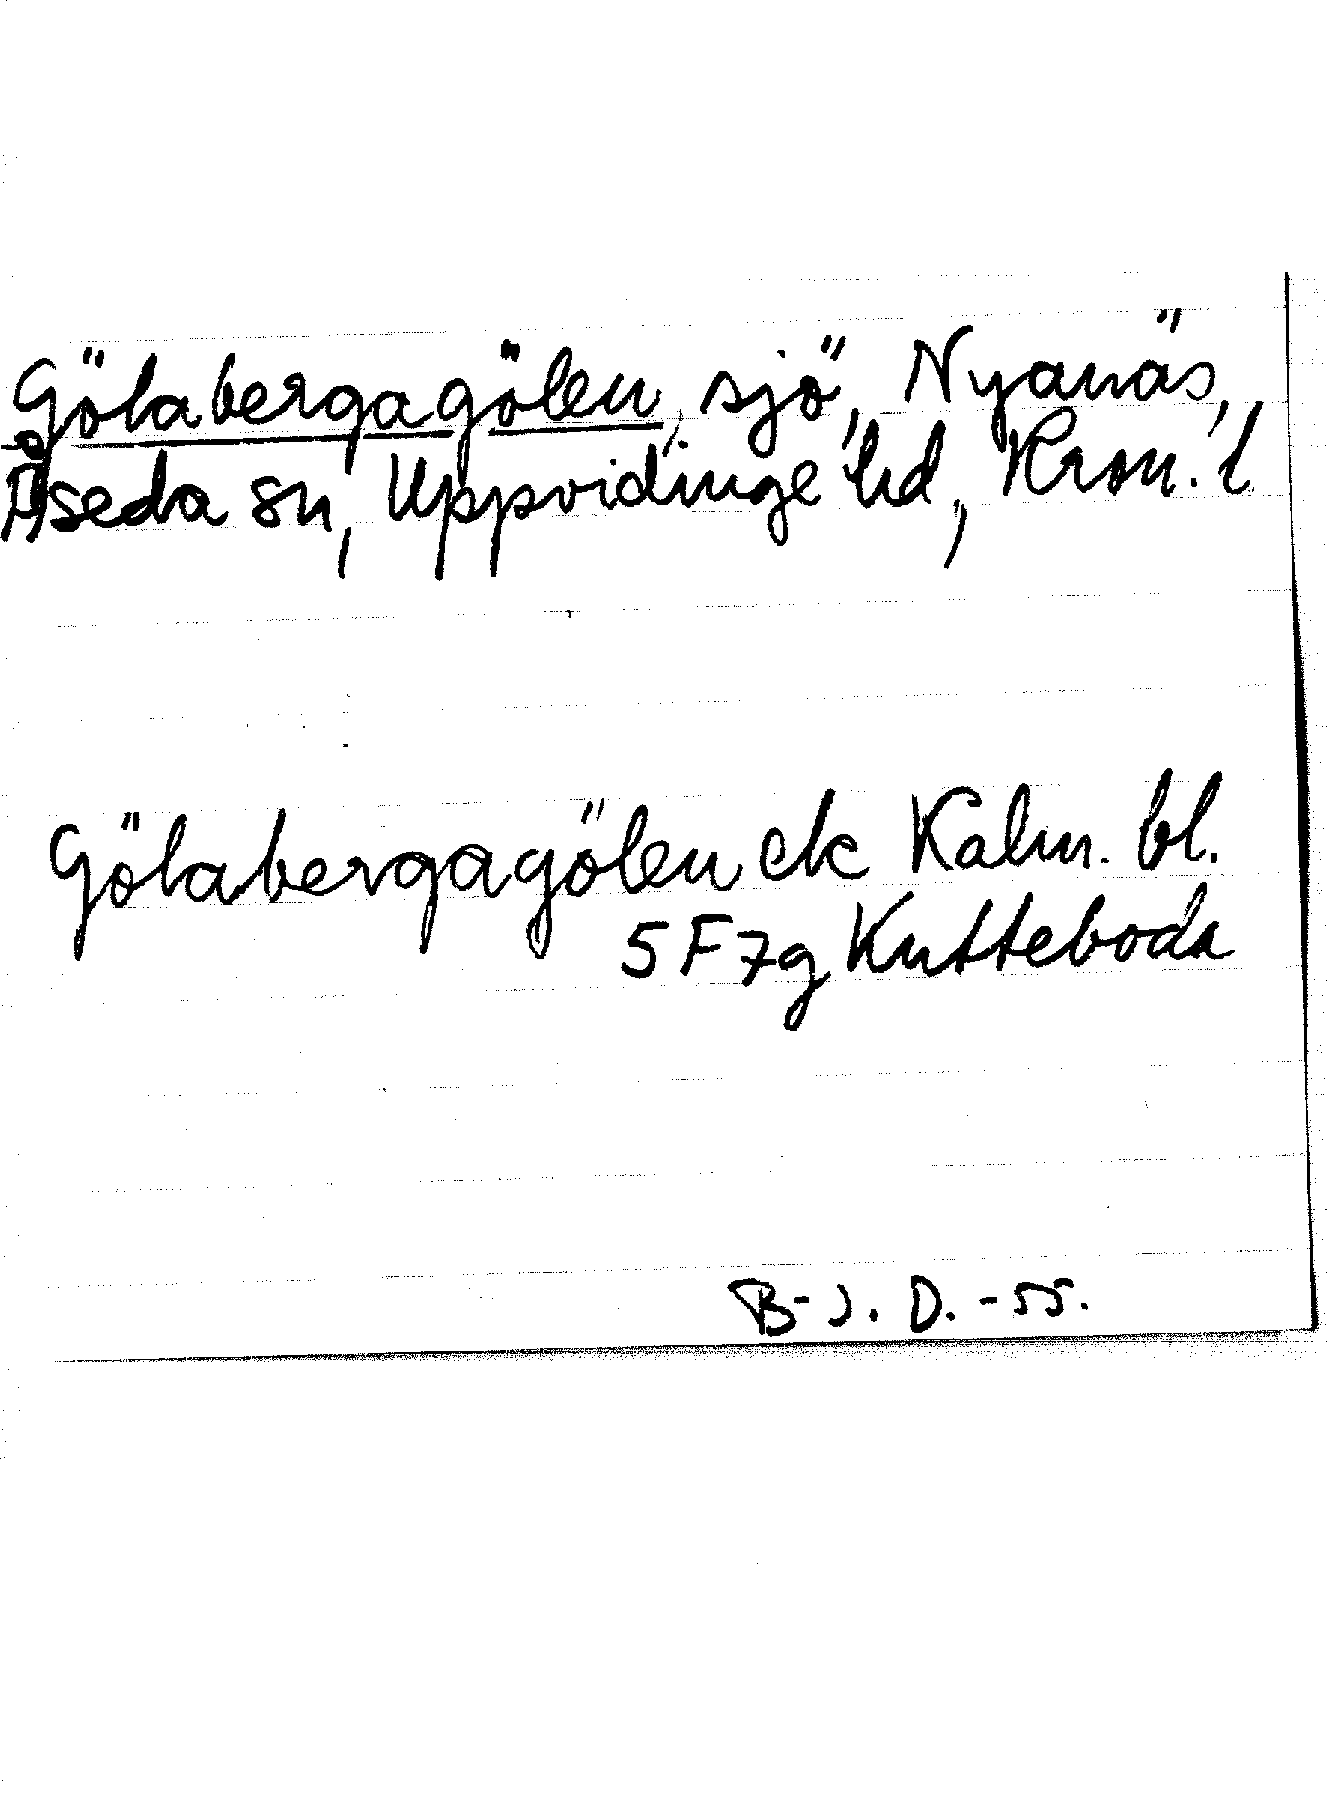 Gölabergagölen, sjö, Nyanäs,
Åseda sn, Uppvidinge hd, Kron. l
Gölabergagölen ek Kalm. bl.
5F7g Kutteboda
B-J. D. -55.